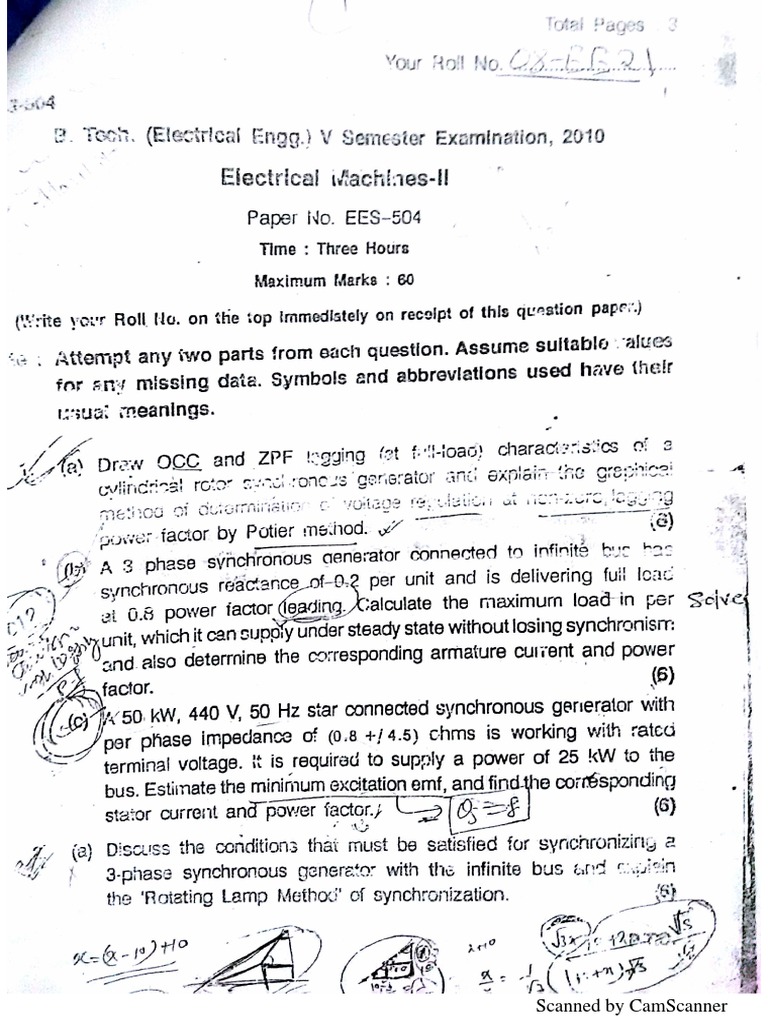 Total Pages 3
Your Roll No. 08-EE21
3-504
B. Tech. (Electrical Engg.) V Semester Examination, 2010
Electrical Machines-II
Paper No. EES-504
Time : Three Hours
Maximum Marks : 60
(Write your Roll No. on the top immediately on receipt of this question paper.)
te : Attempt any two parts from each question. Assume suitable values
for any missing data. Symbols and abbreviations used have their
usual meanings.
(a) Draw OCC and ZPF lagging (at full-load) characteristics of a
cylindrical rotor synchronous generator and explain the graphical
method of determination of voltage regulation at non-zero, lagging
power factor by Potier method.
(6)
(b) A 3 phase synchronous generator connected to infinite bus has
synchronous reactance of 0.2 per unit and is delivering full load
at 0.8 power factor (leading. Calculate the maximum load in per
Solve
unit, which it can supply under steady state without losing synchronism
and also determine the corresponding armature current and power
factor. (6)
(c) A 50 kW, 440 V, 50 Hz star connected synchronous generator with
per phase impedance of (0.8 +/ 4.5) ohms is working with rated
terminal voltage. It is required to supply a power of 25 kW to the
bus. Estimate the minimum excitation emf, and find the corresponding
stator current and power factor. (6)
(a) Discuss the conditions that must be satisfied for synchronizing a
3-phase synchronous generator with the infinite bus and explain
the 'Rotating Lamp Method' of synchronization. (6)
x=(x-10)+10
Scanned by CamScanner